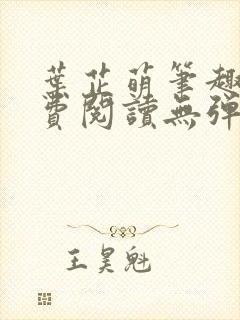 葉芷萌筆趣
費閱讀無彈
王昊魁